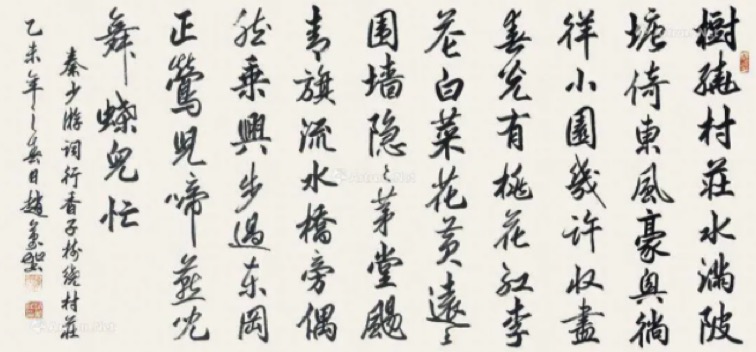 樹繞村莊水滿陂
塘倚東風豪興徜
徉小園幾許收盡
春光有桃花紅李
花白菜花黄遠〻
围墙隐〻茅堂颺
青旗流水橋旁偶
然乘興步過东岡
正鶯兒啼燕兒
舞蝶兒忙
秦少游词行香子树繞村莊
乙未年之春日趙